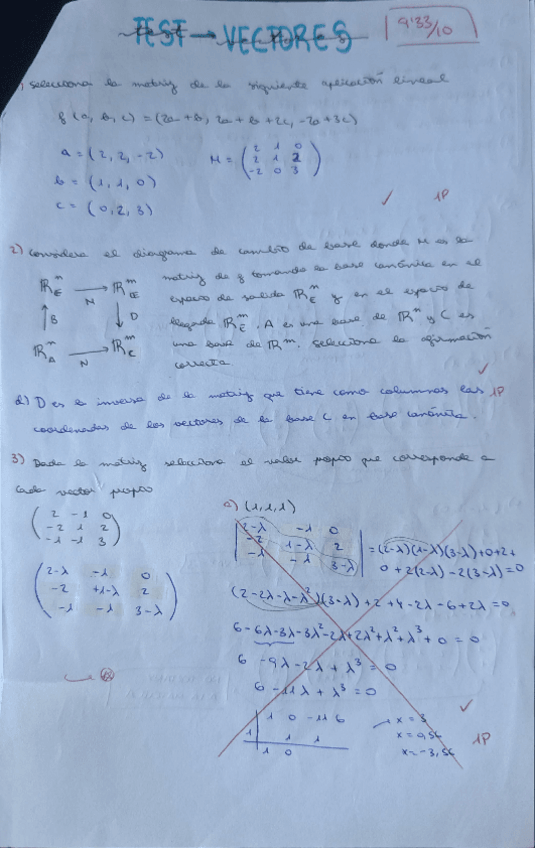 TEST → VECTORES
9'33/10
1) Selecciona la matriz de la siguiente aplicación lineal
f(a, b, c) = (2a + b, 2a + b + 2c, -2a + 3c)
a = (2, 2, -2)
b = (1, 1, 0)
c = (0, 2, 3)
M = ( 2 1 0
2 1 2
-2 0 3 )
✓ 1P
2) Considera el diagrama de cambio de base donde M es la
matriz de f tomando la base canónica en el
espacio de salida ℝⁿ_E y en el espacio de
llegada ℝᵐ_E. A es una base de ℝⁿ y C es
una base de ℝᵐ. Selecciona la afirmación
correcta
ℝⁿ_E → ℝᵐ_E
M
↑ B ↓ D
ℝⁿ_A → ℝᵐ_C
N
✓ 1P
d) D es la inversa de la matriz que tiene como columnas las
coordenadas de los vectores de la base C en base canónica.
3) Dada la matriz selecciona el valor propio que corresponde a
cada vector propio
( 2 -1 0
-2 1 2
-1 -1 3 )
( 2-λ -1 0
-2 +1-λ 2
-1 -1 3-λ )
a) (1,1,1)
| 2-λ -1 0
-2 1-λ 2
-1 -1 3-λ | = (2-λ)(1-λ)(3-λ)+0+2+
0+2(2-λ)-2(3-λ)=0
(2-2λ-λ-λ²)(3-λ)+2+4-2λ-6+2λ=0
6-6λ-3λ-3λ²-2λ+2λ²+λ²+λ³+0=0
6-9λ-2λ+λ³=0
6-11λ+λ³=0
1 0 -11 6
1 1 1
1 0
x = 3
x = 0,56
x = -3,56
✓ 1P